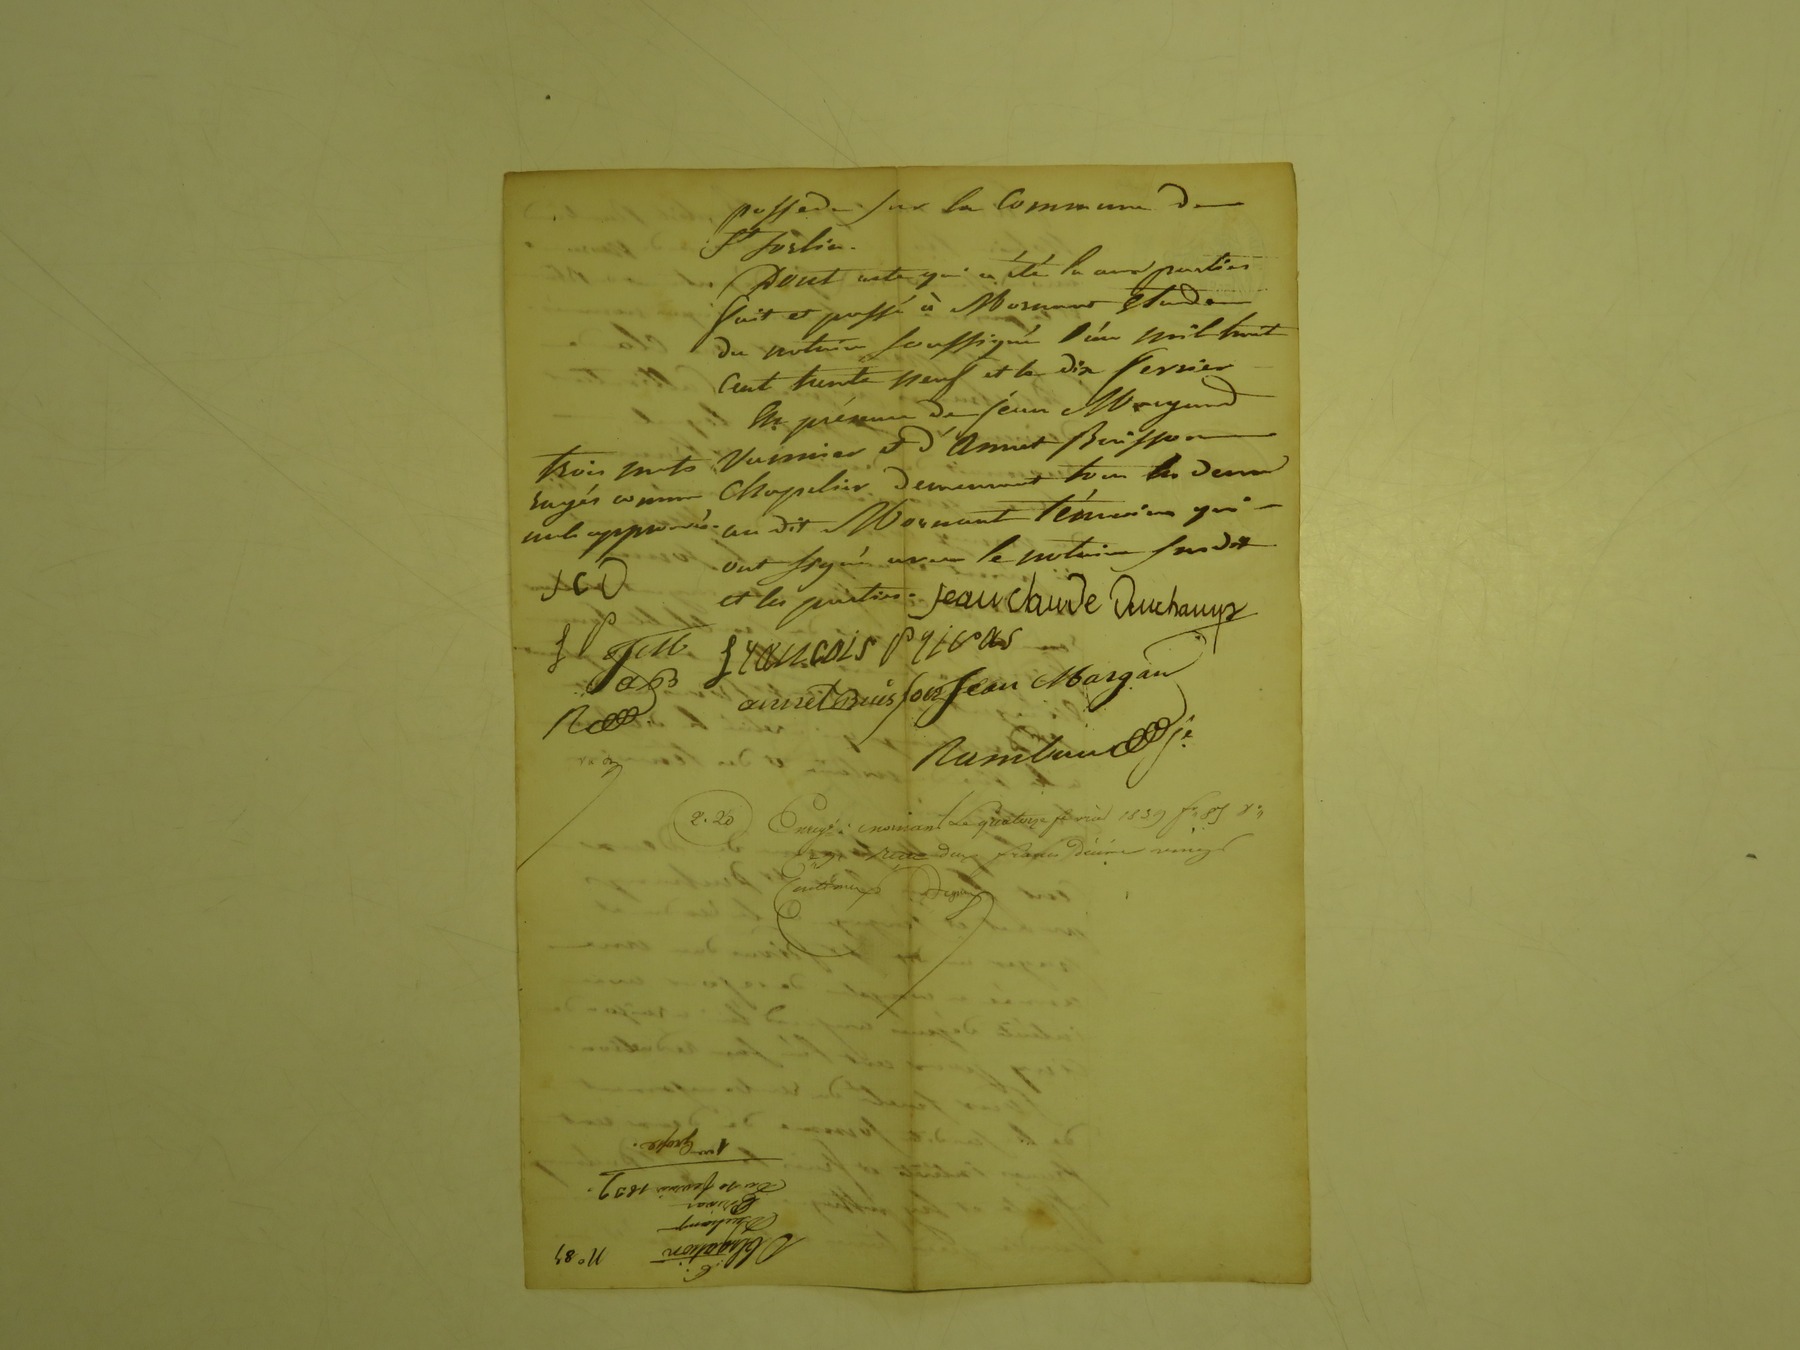 possede sur la Commune de
St Sorlin.
Dont acte qui a été lu aux parties
fait et passé à Mornant Etude
du notaire soussigné l'an mil huit
cent trente neuf et le dix fevrier
En présence de Jean Margand
Vannier et d'Annet Buisson
Chapelier demeurant tous les deux
au dit Mornant témoins qui
ont signé avec le notaire susdit
et les parties.
trois mots
rayés comme
nuls approuvés.
JCD
fP JM
aB
R
Jean Claude Duchamp
françois Privas
annet Buisson Jean Margan
Rambaud je
2.20
Enregé à mornant Le quatorze fevrier 1839 f° 85 v°
reçu deux francs décime vingt
Centimes
N° 89
Obligation
Duchamp
Privas
Du 10 fevrier 1839.
1ere Grosse.